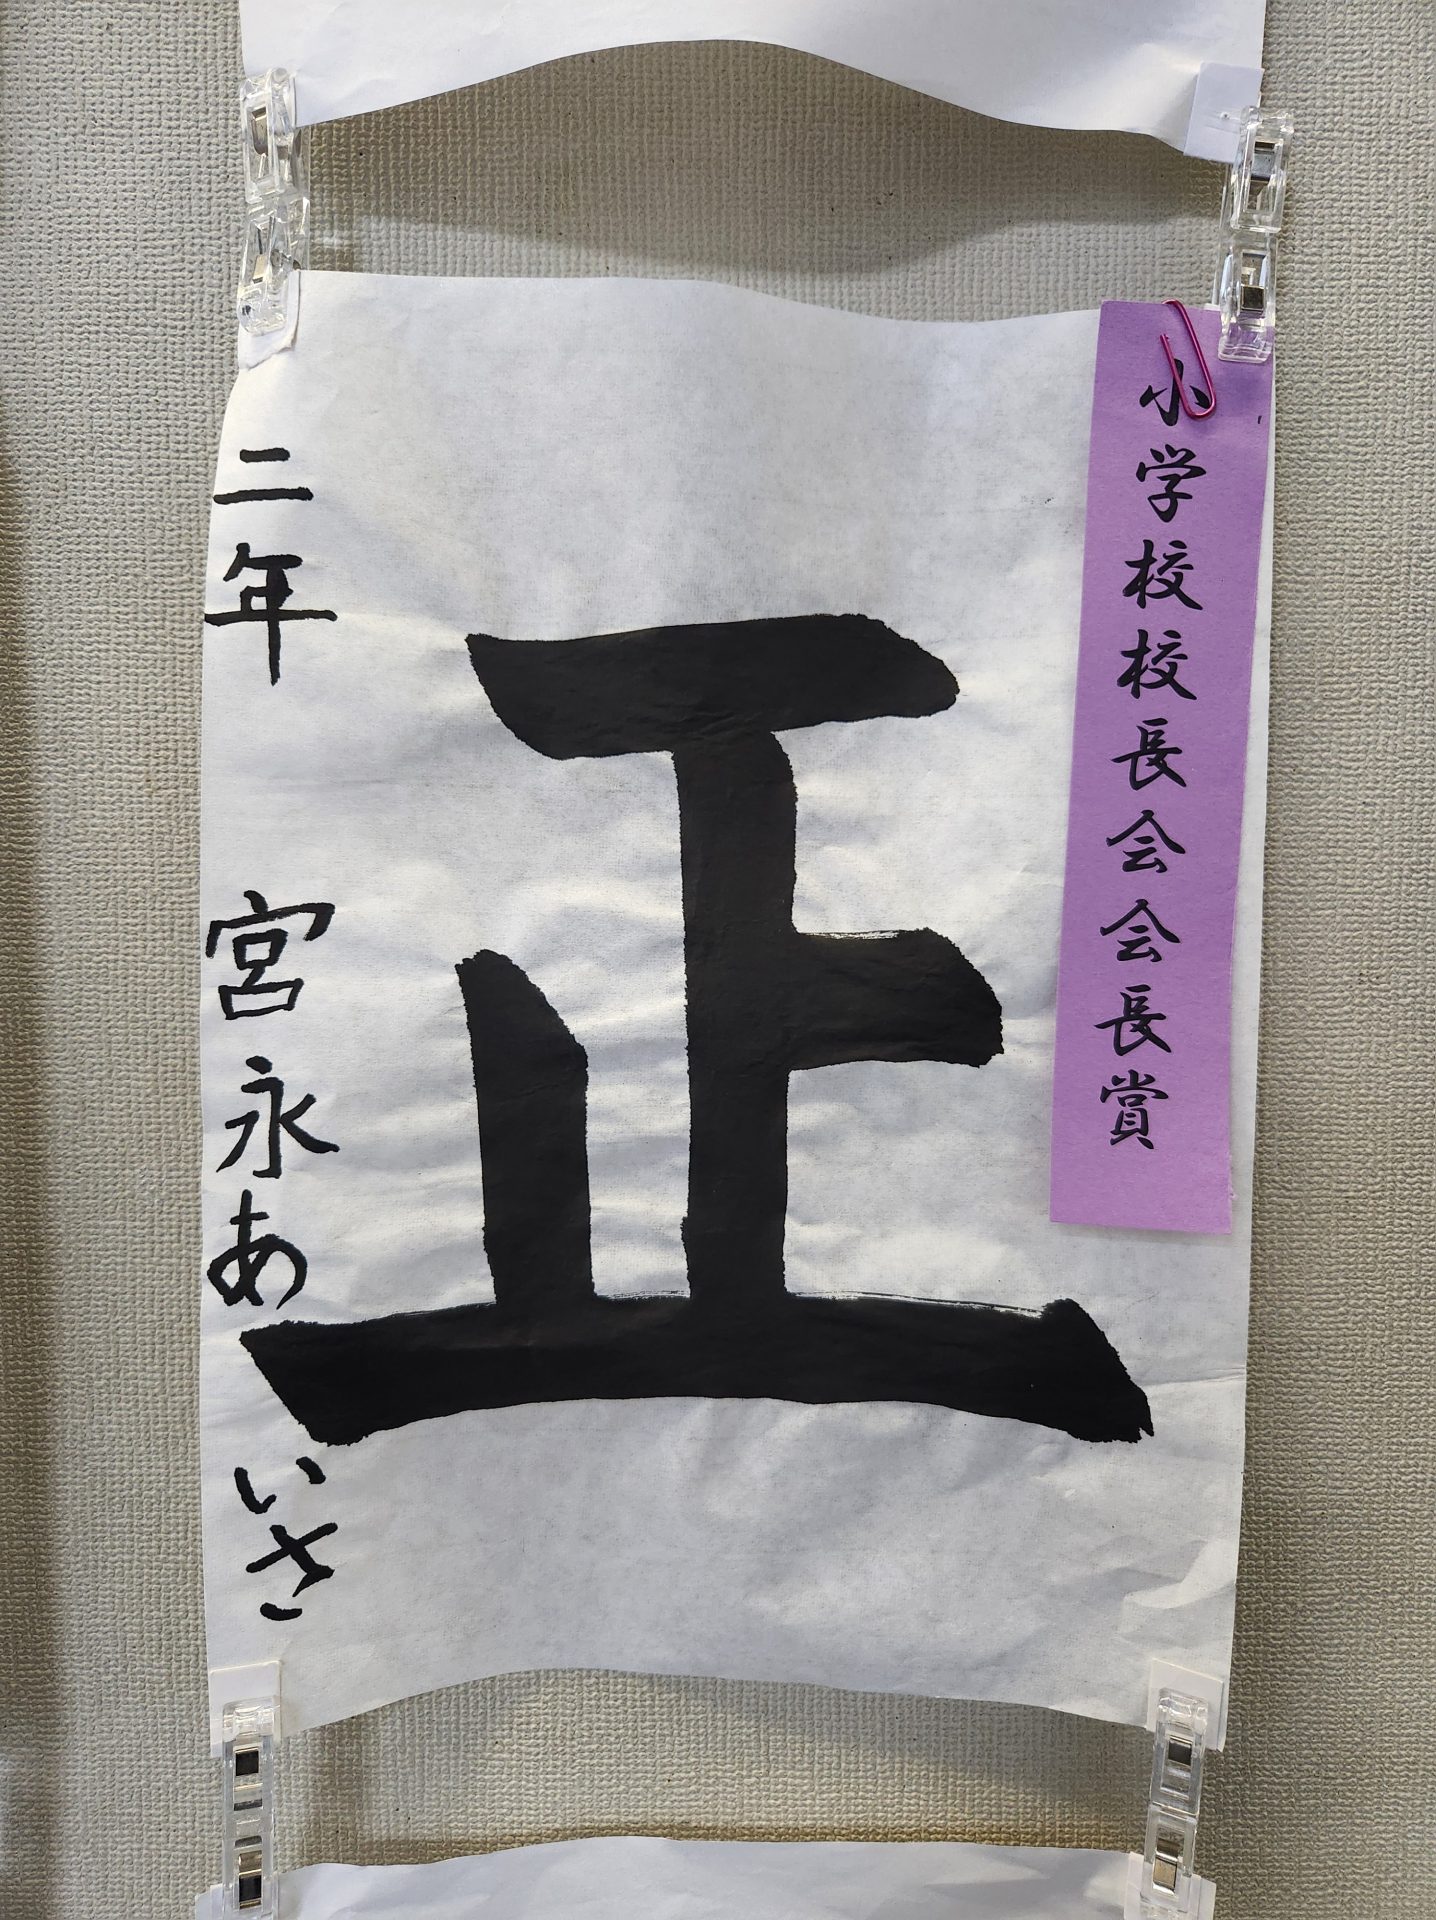 小学校校長会会長賞
正
二年 宮永あいさ